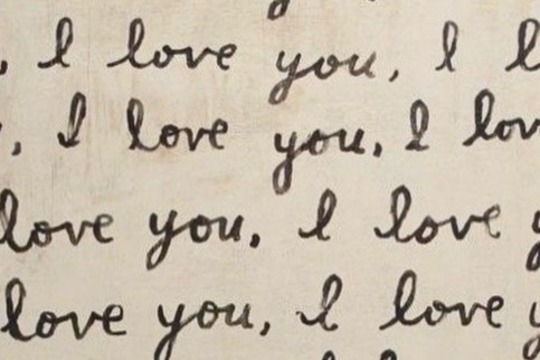 , I love you, I l
, I love you, I lov
love you. I love y
love you, I love y